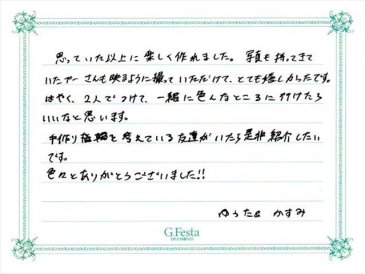 思っていた以上に楽しく作れました。写真も持ってきて
いたプーさんも映るように撮っていただけて、とても嬉しかったです。
はやく、2人でつけて、一緒に色んなところに行けたら
いいなと思います。
手作り指輪を考えている友達がいたら是非紹介したい
です。
色々とありがとうございました!!
ゆうた& かすみ
G.Festa
DIAMOND